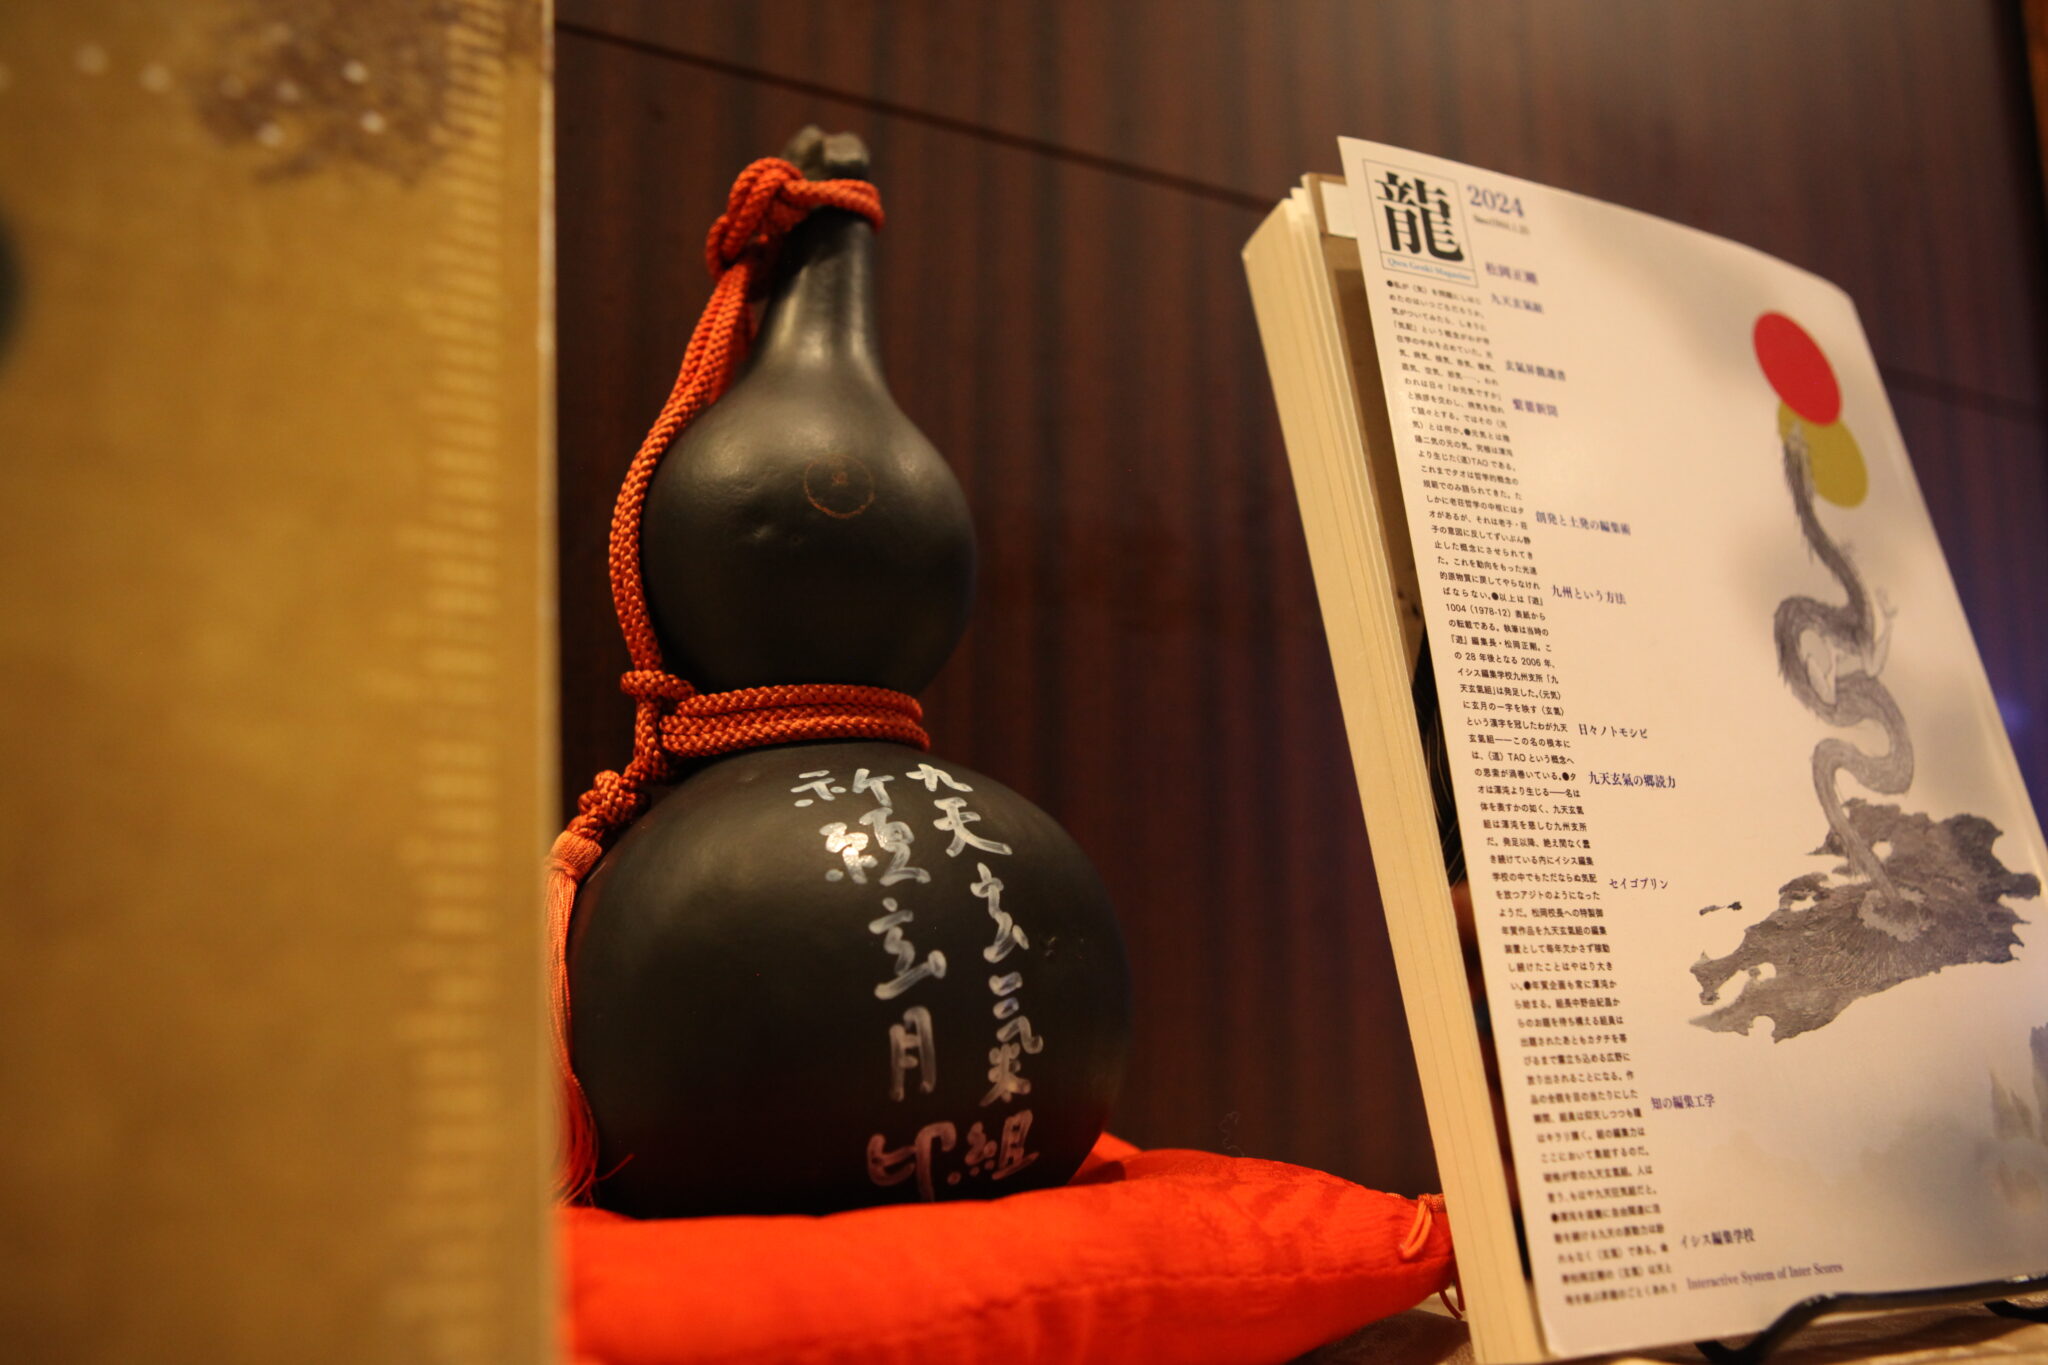 九天玄氣組
祈
玄月
龍
2024
Qten Genki Magazine
松岡正剛
九天玄氣組
玄氣昇龍選書
繋葉新聞
創発と土発の編集術
九州という方法
日々ノトモシビ
九天玄氣の郷読力
セイゴプリン
知の編集工学
イシス編集学校
Interactive System of Inter Scores
●私が〈気〉を問題にしはじ
めたのはいつごろだろうか。
気がついてみたら、しきりに
「気配」という概念がわが存
在学の中央を占めていた。
われは日々「お元気ですか」
と挨拶を交わし、病気を恐れ
て闘々とする。ではその〈元
気〉とは何か。●元気とは陰
陽二気の元の気。究極は渾沌
より生じた〈道〉TAOである。
これまでタオは哲学的概念の
規範でのみ語られてきた。た
しかに老荘哲学の中核にはタ
オがあるが、それは老子・荘
子の意図に反してずいぶん静
止した概念にさせられてき
た。これを動向をもった光速
的原物質に戻してやらなけれ
ばならない。●以上は『遊』
1004（1978-12）表紙から
の転載である。執筆は当時の
『遊』編集長・松岡正剛。こ
の28年後となる2006年、
イシス編集学校九州支所「九
天玄氣組」は発足した。〈元気〉
に玄月の一字を映す〈玄氣〉
という漢字を冠したわが九天
玄氣組――この名の根本に
は、〈道〉TAOという概念へ
の思索が渦巻いている。●タ
オは渾沌より生じる――名は
体を表すかの如く、九天玄氣
組は渾沌を慈しむ九州支所
だ。発足以降、絶え間なく蠢
き続けている内にイシス編集
学校の中でもただならぬ気配
を放つアジトのようになった
ようだ。松岡校長への特製御
年賀作品を九天玄氣組の編集
装置として毎年欠かさず稼動
し続けたことはやはり大き
い。●年賀企画も常に渾沌か
ら始まる。組長中野由紀昌か
らのお題を待ち構える組員は
出題されたあともカタチを帯
びるまで霧立ち込める広野に
放り出されることになる。作
品の全貌を目の当たりにした
瞬間、組員は仰天しつつも瞳
はキラリ輝く。組の編集力は
ここにおいて集結するのだ。